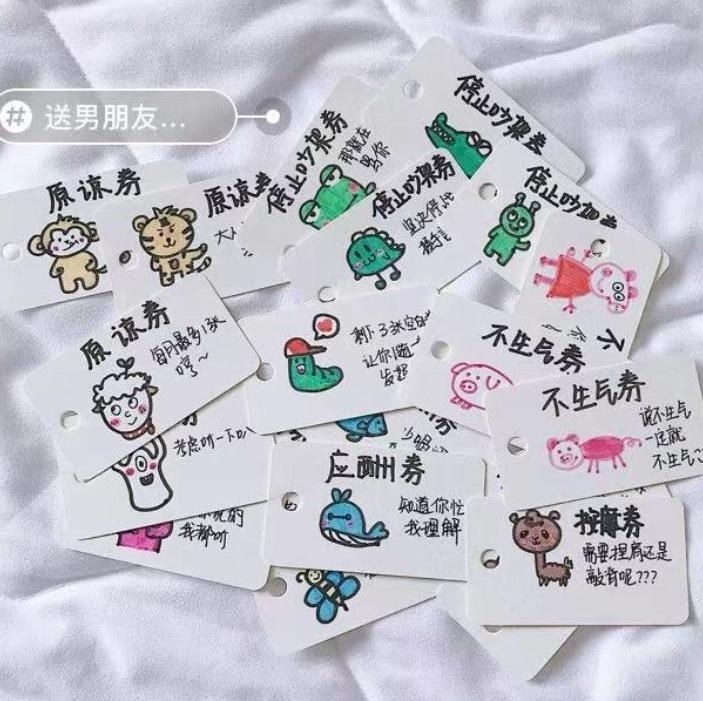 # 送男朋友...
停止吵架券
停止吵架券
那就在
原谅券
原谅券
停止吵架券
坚决停止
停止吵架
原谅券
每月最多1张
哼~
剩下3张空白
让你随
发起
不生气券
不生气券
说不生气
一定就
不生气
考虑听一下
我都听
应酬券
知道你忙
我理解
按摩券
需要捏肩还是
敲背呢???